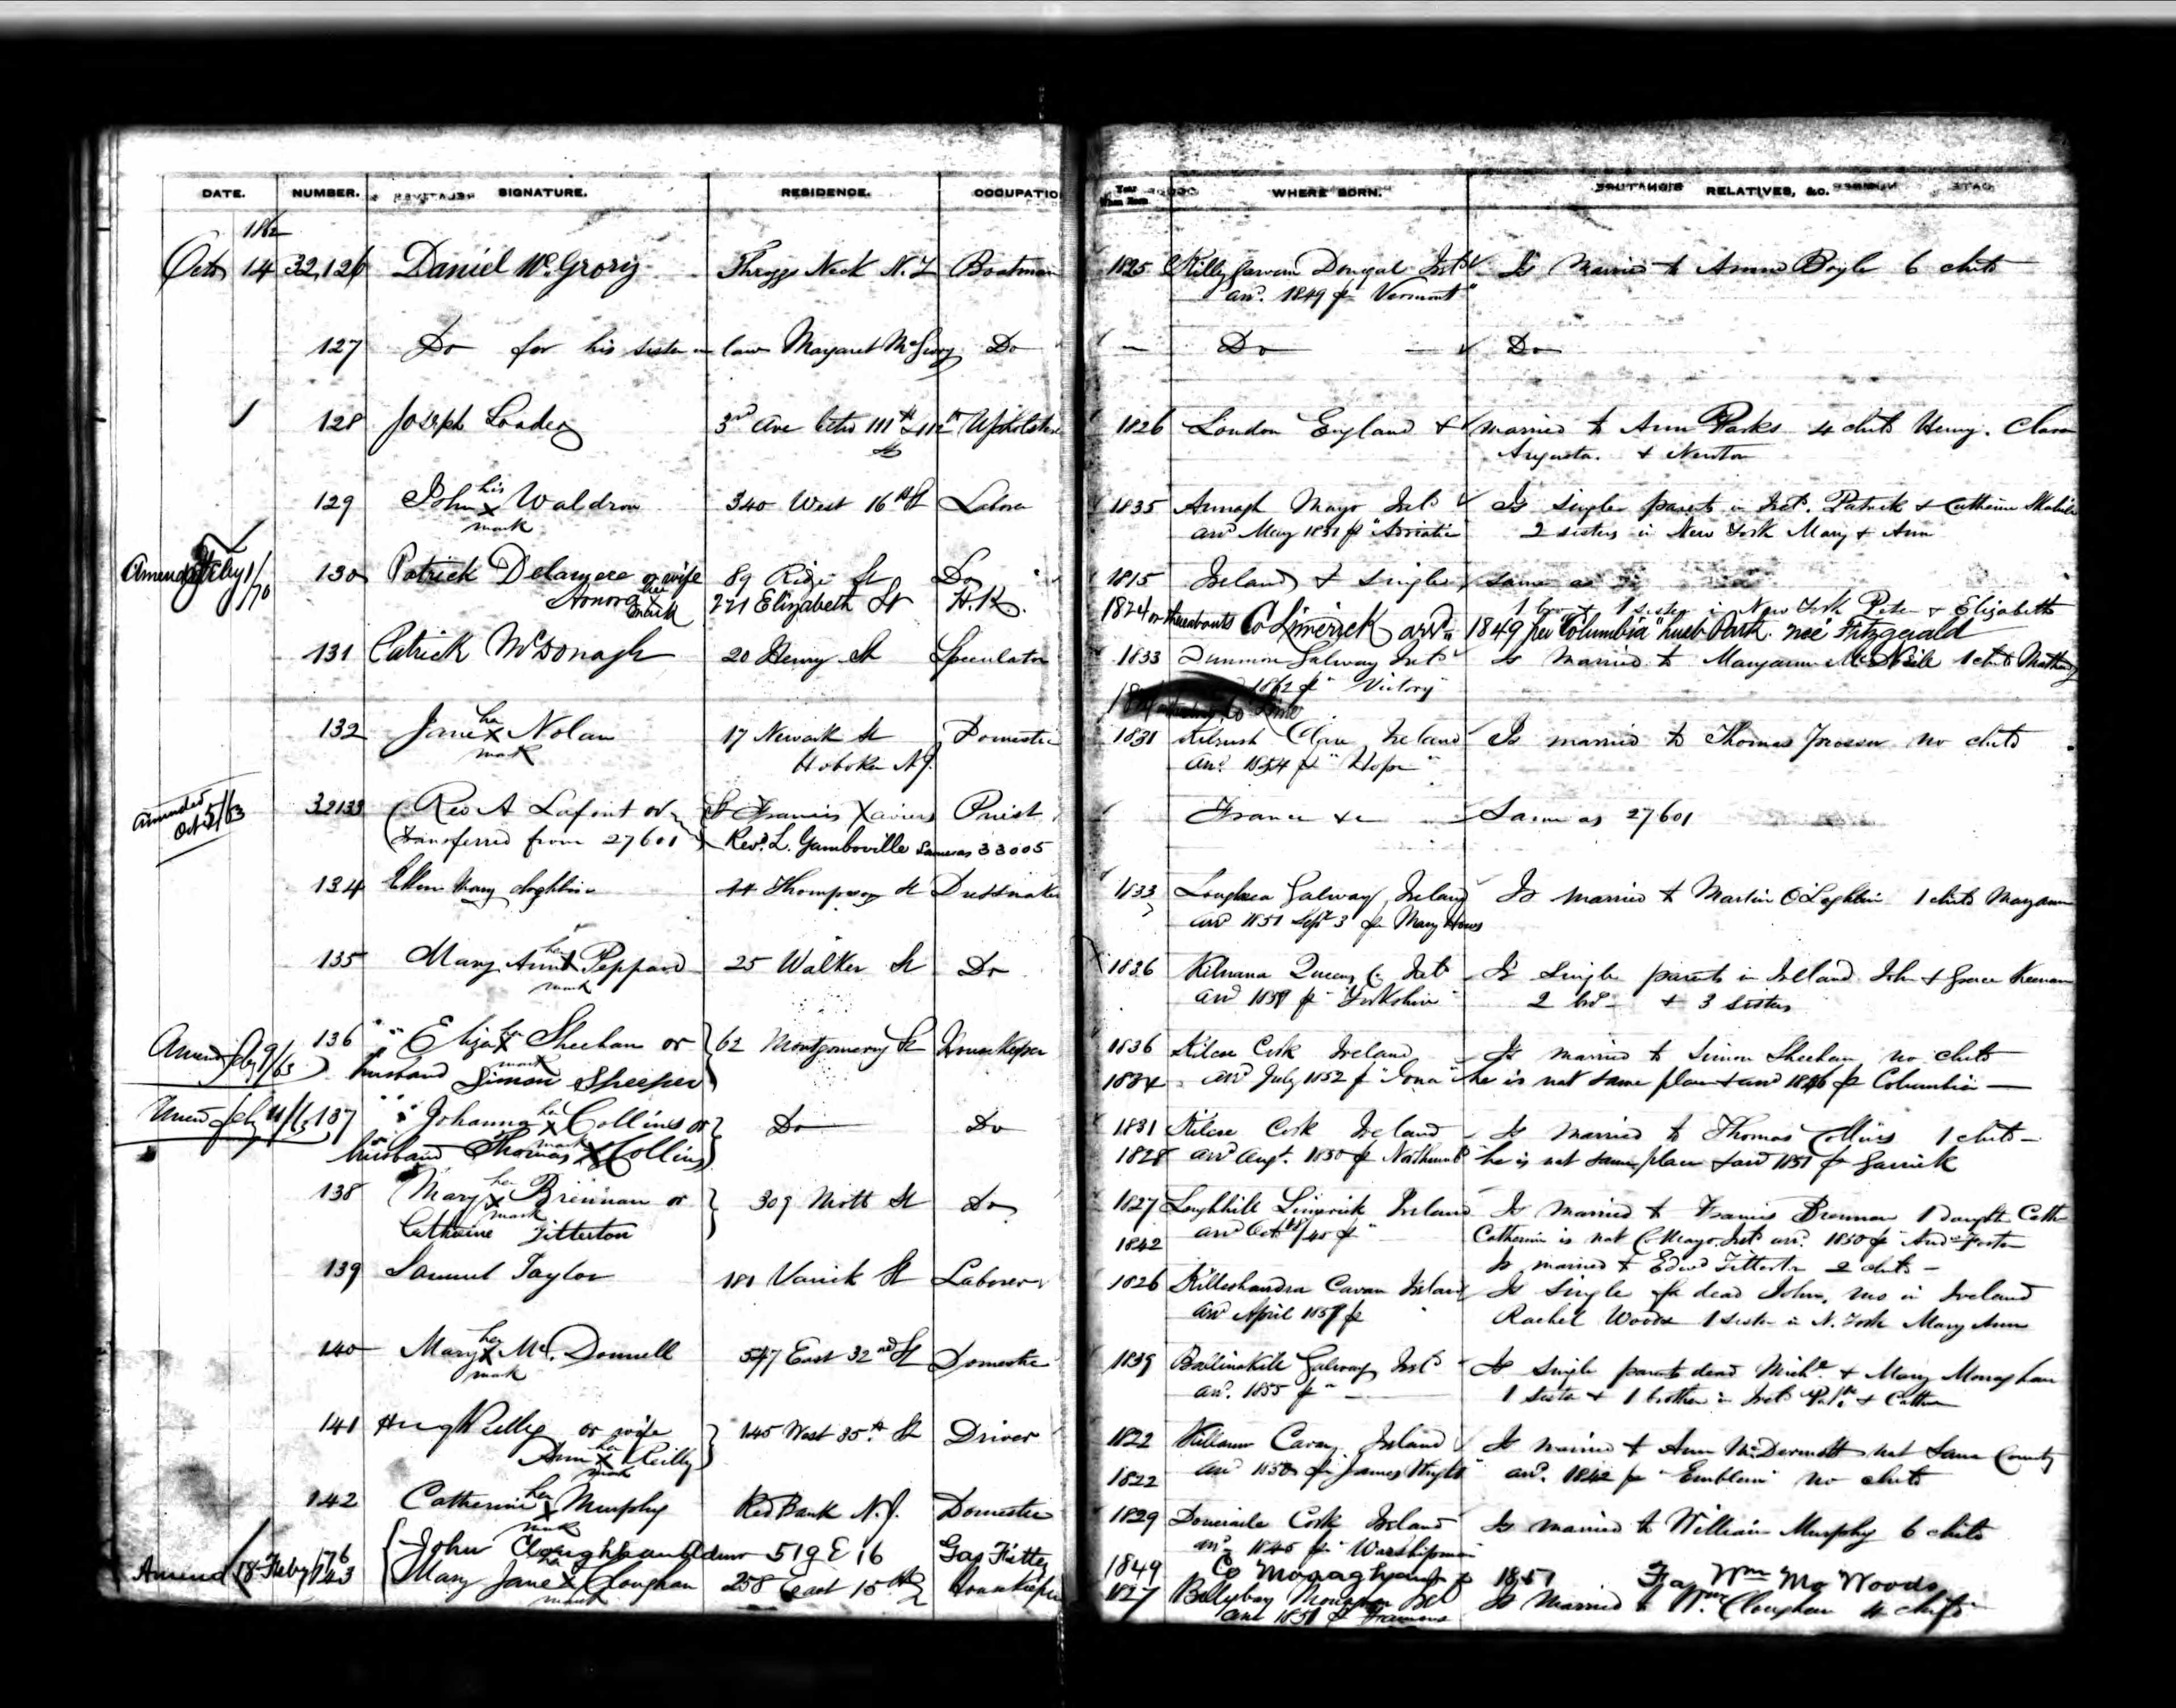 DATE. NUMBER. SIGNATURE. RESIDENCE. OCCUPATIO WHERE BORN. RELATIVES, &C.
1862
Oct 14 32,126 Daniel McGrory Throggs Neck N.Y. Boatman 1825 Donegal Ireld Is Married to Boyle 6 chils
arrd. 1849 pr Vermont"
127 Do for his sister in law Margaret McGrory Do — Do Do
128 Joseph 3rd Ave betw 111th & 112th Upholster 1826 London England & married to Ann Parks 4 chils Henry. Clara
St Augusta. & Newton
129 John his x mark Waldron 340 West 16th St Labore 1835 Mayo Ireld Is single parents in Ireld. Patrick & Catherine
arrd May 1851 pr "Adriatic 2 sisters in New York Mary & Ann
Amend Feby 1/70 130 Patrick Delamere or wife 89 Ridge St Do 1815 Ireland & single same as
Honora her x mark 221 Elizabeth St H.K. 1 bro & 1 sister in New York Peter & Elizabeth
1824 or thereabouts Co Limerick arrd. 1849 per "Columbia" husb Patk. nee Fitzgerald
131 Patrick McDonagh 20 Henry St Speculator 1833 Dunmore Galway Ireld Is married to Maryann 1 child
1862 pr "Victory"
132 Jane her x mark Nolan 17 Newark St Domestic 1831 Kilrush Clare Ireland Is married to Thomas no chils
Hoboken N.J. arrd. 1854 pr "Hope"
Amended Oct 5/63 32133 Rev A Lafont or St Francis Xaviers Priest France & Same as 27601
(transferred from 27601) Revd. L. Gamboville same as 33005
134 Ellen 44 Thompson St Dressmaker 1833 Loughrea Galway Ireland Is married to Martin O'Loghlin 1 child Maryann
arrd 1851 Sept 3 pr Mary
135 Mary Ann her x mark Peppard 25 Walker St Do 1836 Queens Co Ireld Is single parents in Ireland John & Grace Keenan
arrd pr "Yorkshire" 2 bro & 3 sisters
Amend Feby 9/63 136 Eliza her x mark Sheehan or 62 Montgomery St Housekeeper 1836 Cork Ireland Is married to Simon Sheehan no chils
husband Simon Sheehan 1834 arrd July 1852 pr "Iona" he is nat same place & arrd 1846 pr Columbia —
Amend Feby 137 Johanna her x mark Collins or Do Do 1831 Cork Ireland Is married to Thomas Collins 1 child —
husband Thomas x Collins 1828 arrd Augt. 1850 pr he is nat same place & arrd 1851 pr Garrick
138 Mary her x mark Brennan or 309 Mott St Do 1827 Loughill Limerick Ireland Is married to Francis Brennan 1 Daughter Cath
Catherine Titterton 1842 arrd Oct Catherine is nat Co Mayo Ireld arrd. 1850 pr
Is married to Edwd Titterton 2 chils —
139 Samuel Taylor 181 Varick St Laborer 1826 Killeshandra Cavan Ireland Is Single fa dead John, mo in Ireland
arrd April pr Rachel Woods 1 sister in N. York Mary Ann
140 Mary her x mark Mc. Donnell 547 East 32nd St Domestic 1839 Galway Ireld Is single parents dead Michl. & Mary Monaghan
arrd. 1855 pr " — 1 sister & 1 brother in Ireld
141 Hugh Reilly or wife 145 West 35th. St Driver 1822 Cavan, Ireland Is married to Ann McDermott nat same County
Ann her x mark Reilly 1822 arrd 1850 pr James Wright arrd. 1842 pr "Emblem" no chils
142 Catherine her x mark Murphy Red Bank N.J. Domestic 1829 Doneraile Cork Ireland Is married to William Murphy 6 chils
arrd. pr
John 519 E 16 Gas Fitter 1849 Co Monaghan pr 1851 Fa Wm Mo Woods
Amend 18 Feby/76 143 Mary Jane x mark Cloughan 258 East 15th Housekeeper 1827 Ballybay Monaghan Ireld Is Married to Wm. Cloughan 4 chils
arrd 1851 pr